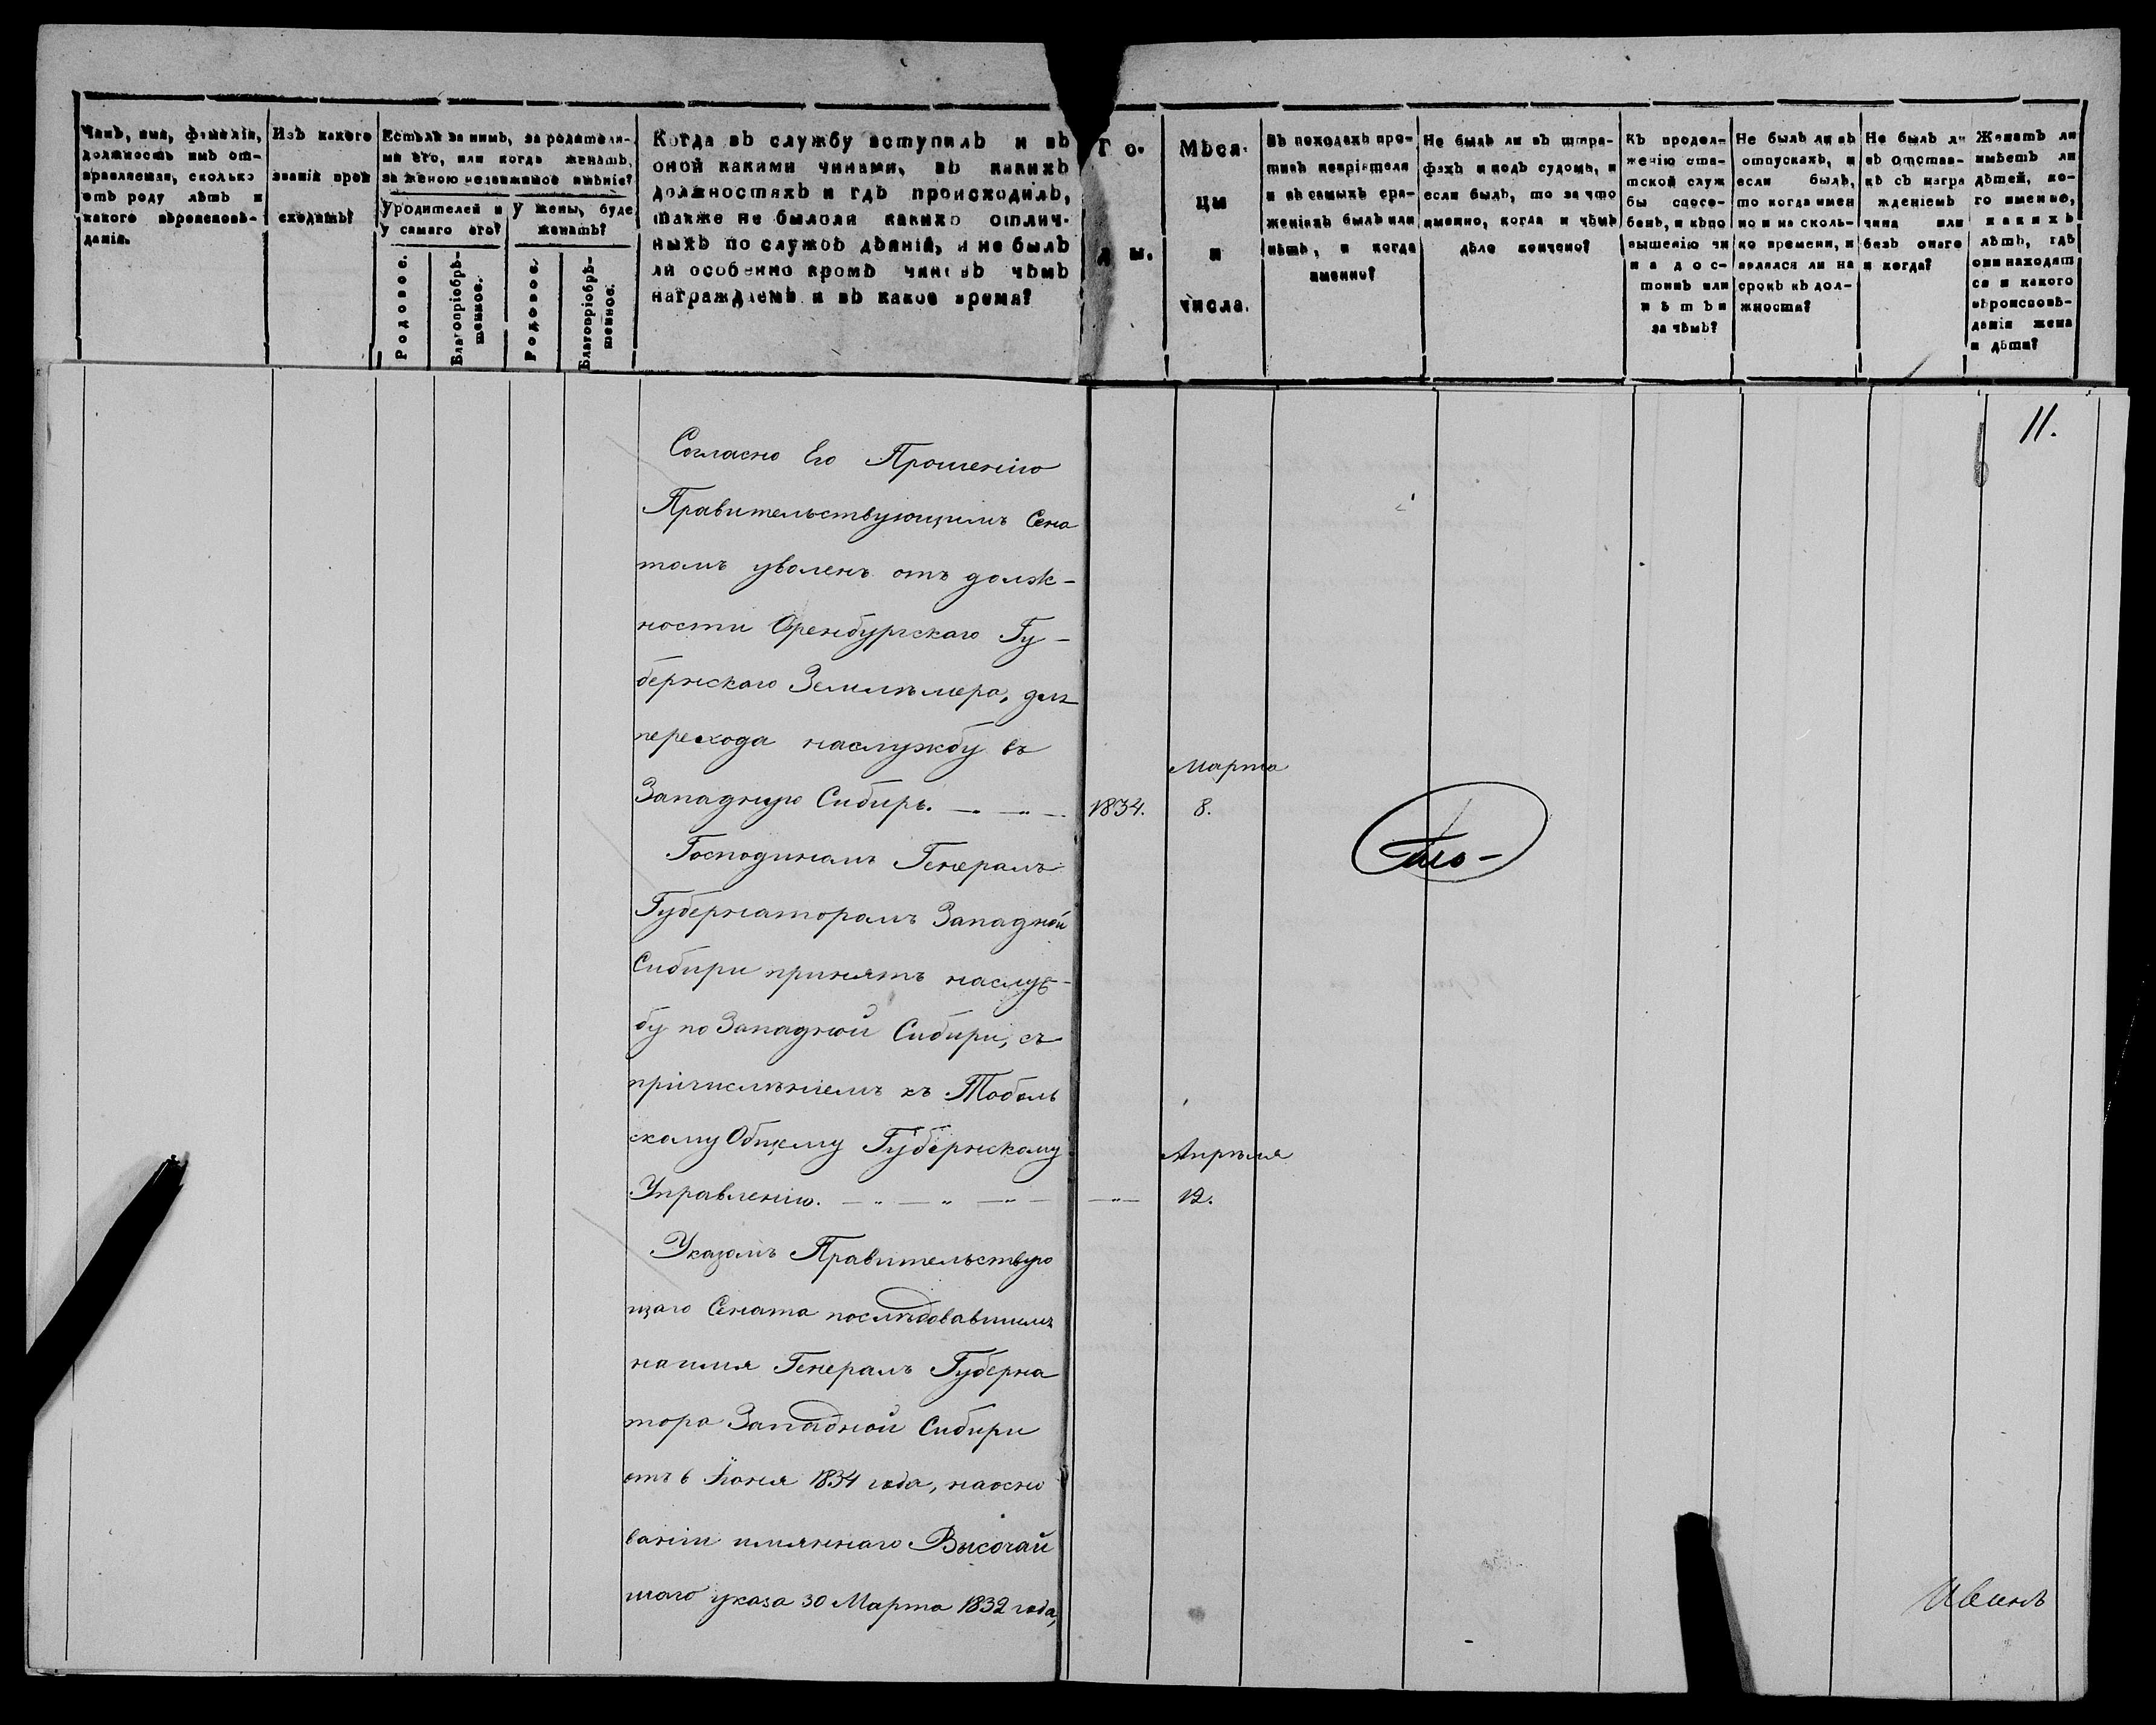 Чинъ, имя, фамилія,
должность имъ от-
правляемая, сколько
отъ роду лѣтъ и
какого вѣроисповѣ-
данія.
Изъ какого
званія прои
сходитъ?
Есть ли за нимъ, за родителя-
ми его, или когда женатъ,
за женою недвижимое имѣніе?
У родителей и
у самаго его?
У жены, буде
женатъ?
Родовое.
Благопріобрѣ-
тенное.
Родовое.
Благопріобрѣ-
тенное.
Когда въ службу вступилъ и въ
оной какими чинами, въ какихъ
должностяхъ и гдѣ происходилъ,
также не было ли какихъ отлич-
ныхъ по службѣ дѣяній, и не былъ
ли особенно кромѣ чиновъ чѣмъ
награждаемъ и въ какое время?
Го-
ды.
Мѣся-
цы
и
числа.
Въ походахъ про-
тивъ непріятеля
и въ самыхъ сра-
женіяхъ былъ или
нѣтъ, и когда
именно?
Не былъ ли въ штра-
фахъ и подъ судомъ, и
если былъ, то за что
именно, когда и чѣмъ
дѣло кончено?
Къ продол-
женію ста-
тской служ
бы спосо-
бенъ, и къ по
вышенію чи
на дос-
тоинъ или
нѣтъ и
за чѣмъ?
Не былъ ли въ
отпускахъ, и
если былъ,
то когда имен
но и на сколь-
ко времени, и
являлся ли на
срокъ къ дол-
жности?
Не былъ ли
въ отстав-
кѣ съ награ
жденіемъ
чина или
безъ онаго
и когда?
Женатъ ли
имѣетъ ли
дѣтей, ко-
го именно,
какихъ
лѣтъ, гдѣ
они находят
ся и какого
вѣроисповѣ-
данія жена
и дѣти?
11.
Согласно Его Прошенію
Правительствующимъ Сена
томъ уволенъ отъ долж-
ности Оренбургскаго Гу-
бернскаго Землемѣра, для
перехода наслужбу въ
Марта
Западную Сибирь. 1834. 8.
Господиномъ Генералъ
Губернаторомъ Западной
Сибири принятъ наслуж-
бу по Западной Сибири, съ
причислѣніемъ къ Тоболь
скому Общему Губернскому
Апрѣля
Управленію. — „ — 12.
Указомъ Правительствую
щаго Сената послѣдовавшимъ
наимя Генералъ Губерна
тора Западной Сибири
отъ 6 Іюня 1834 года, наосно
ваніи имяннаго Высочай
шаго указа 30 Марта 1832 года,